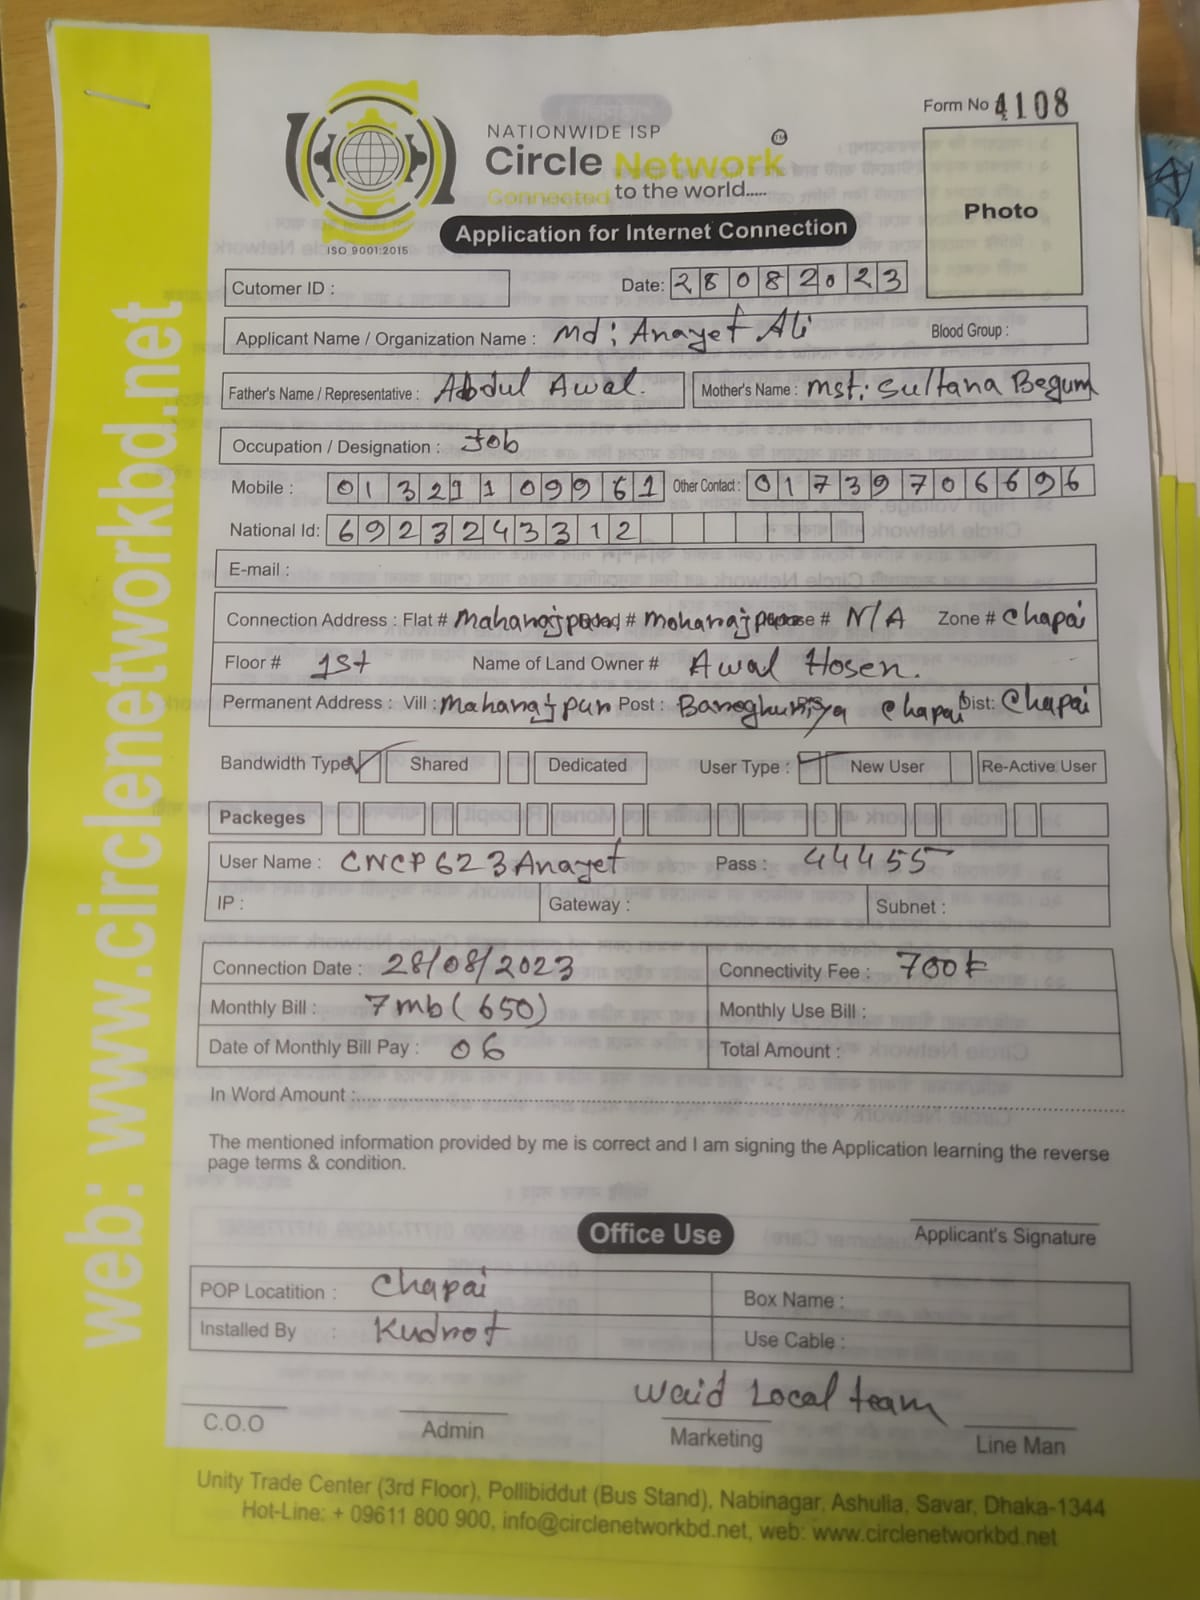 Form No 4108
NATIONWIDE ISP
Circle Network
Connected to the world.....
ISO 9001:2015
Application for Internet Connection
Photo
Cutomer ID :
Date: 28082023
Applicant Name / Organization Name : Md: Anayet Ali Blood Group :
Father's Name / Representative : Abdul Awal. Mother's Name : Mst: Sultana Begum
Occupation / Designation : Job
Mobile : 01321109961 Other Contact : 01739706696
National Id: 6923243312
E-mail :
Connection Address : Flat # Maharajpur # Moharajpur # N/A Zone # Chapai
Floor # 1st Name of Land Owner # Awal Hosen.
Permanent Address : Vill : Maharajpur Post : Chapai Dist: Chapai
Bandwidth Type Shared Dedicated User Type : New User Re-Active User
Packeges
User Name : CNCP623Anayet Pass : 44455
IP : Gateway : Subnet :
Connection Date : 28/08/2023 Connectivity Fee : 700৳
Monthly Bill : 7mb (650) Monthly Use Bill :
Date of Monthly Bill Pay : 06 Total Amount :
In Word Amount :
The mentioned information provided by me is correct and I am signing the Application learning the reverse
page terms & condition.
Applicant's Signature
Office Use
POP Locatition : Chapai Box Name :
Installed By : Kudrot Use Cable :
Waid Local team
C.O.O Admin Marketing Line Man
Unity Trade Center (3rd Floor), Pollibiddut (Bus Stand), Nabinagar, Ashulia, Savar, Dhaka-1344
Hot-Line: + 09611 800 900, info@circlenetworkbd.net, web: www.circlenetworkbd.net
web: www.circlenetworkbd.net